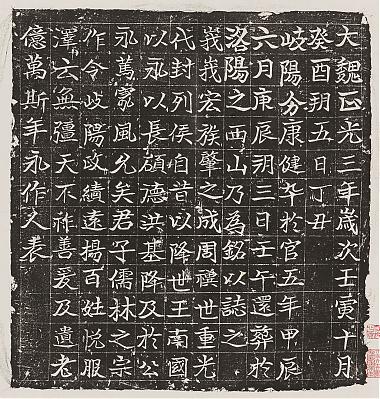 大魏正光三年歲次壬寅十月
癸酉朔五日丁丑
岐陽分康健卒於官五年甲辰
六月庚辰朔三日壬午還葬於
洛陽之西山乃為銘以誌之
峩峩宏族肇之成周禩世重光
代封列侯自昔以降世王南國
以永以長頎德洪基降及於公
永篤家風允矣君子儒林之宗
作令岐陽政績遠揚百姓悅服
澤云無疆天不祚善爰及遺老
億萬斯年永作人表